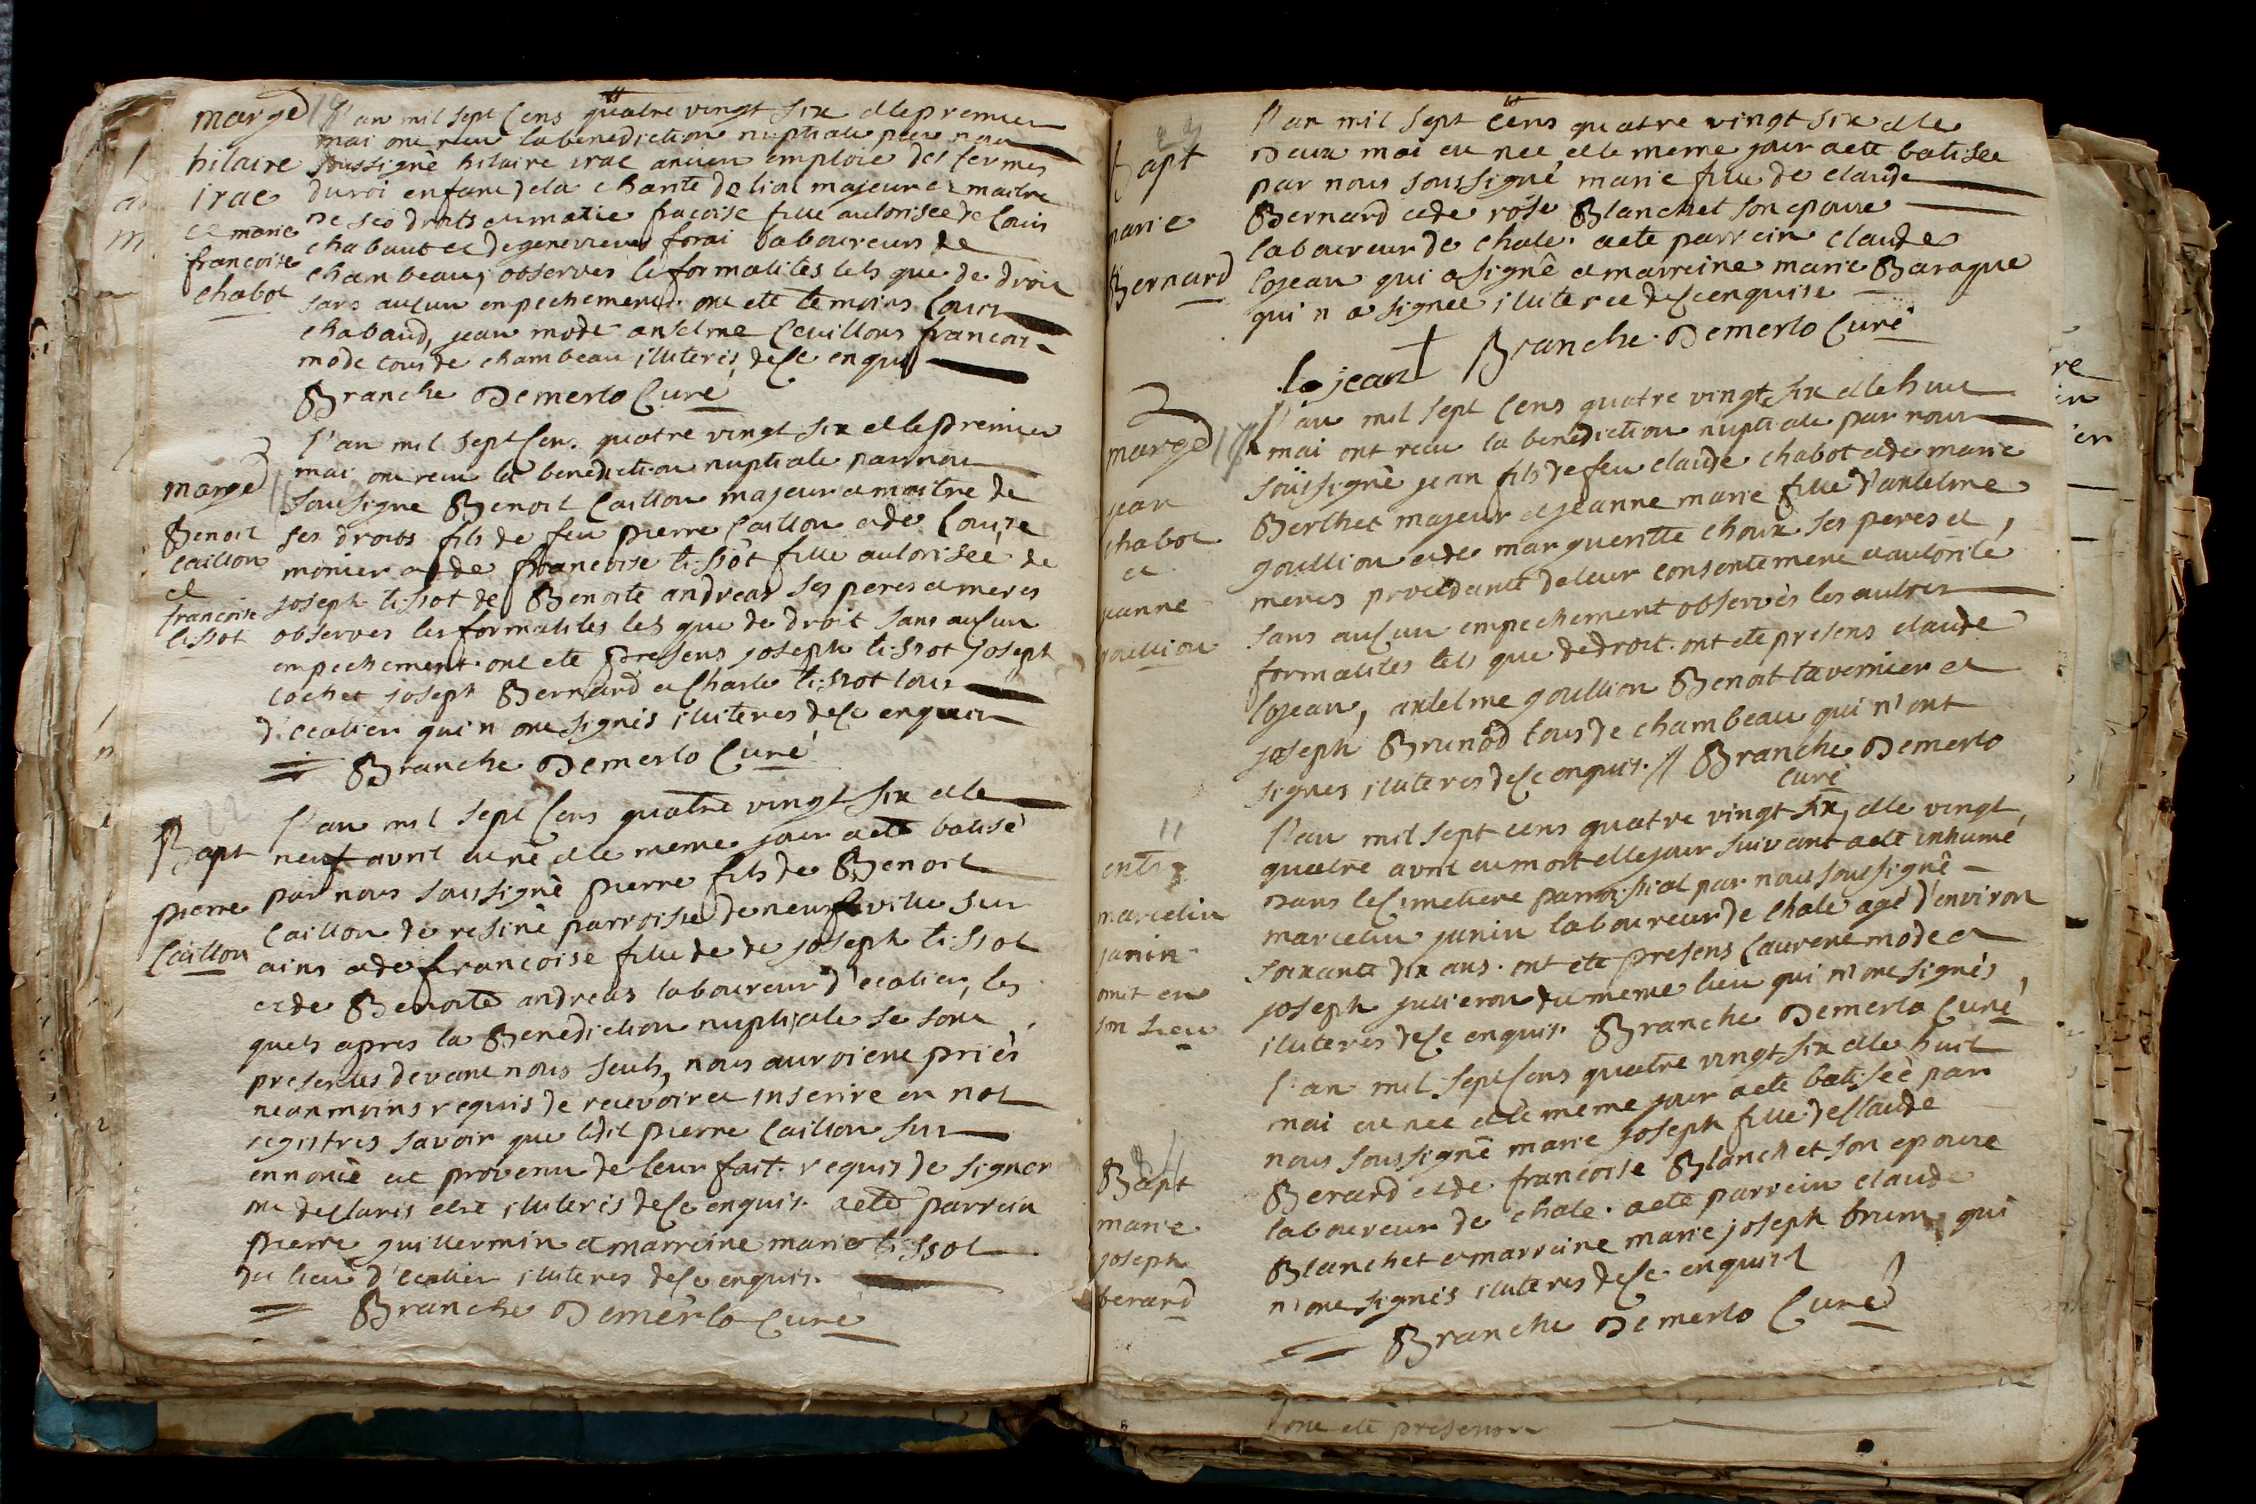 marge
hilaire
irae
et marie
francoise
chabot
l'an mil sept cens quatre vingt six et le premier
mai ont recu la benediction nuptiale par nous
soussigné hilaire irae ancien emploie des fermes
du roi enfant de la charite de lion majeur et maitre
de ses droits et marie fracoise fille autorisee de Louis
chabaut et de genevieve forai laboureurs de
chambeau, observes les formalites tels que de droit
sans aucun empechement. ont ete temoins Louis
chabaud, jean mode anselme francois
mode tous de chambeau illiteres de ce enquis
Branche Demerlo Curé
marge
Benoit
caillon
et
francoise
tissot
l'an mil sept cens quatre vingt six et le premier
mai ont recu la benediction nuptiale par nous
soussigne Benoit Caillon majeur et maitre de
ses droits fils de feu pierre Caillon et de Louise
monier et de francoise tissot fille autorisée de
joseph tissot de Benoite andreas ses peres et meres
observes les formalites tels que de droit sans aucun
empechement. ont ete presens joseph tissot joseph
cochet joseph Bernard et Charle tissot tous
d'ecotier qui n'ont signés illiteres de ce enquis
Branche Demerlo Curé
Bapt
pierre
Caillon
l'an mil sept cens quatre vingt six et le
neuf avril est né et le meme jour a eté batisé
par nous soussigné pierre fils de Benoit
Caillon de resine parroisse de neufville sur
ains et de francoise fille de de joseph tissot
et de Benoite andreas laboureur d'ecotier, les
quels apres la Benediction nuptiale se sont
presentes devant nous seuls, nous auroient priés
neanmoins requis de recevoir et inscrire en nos
registres savoir que ledit pierre Caillon sus
ennoncé est provenu de leur fait. requis de signer
ont declarés etre illiterés de ce enquis. a eté parrein
pierre guillermin et marreine marie tissot
du lieu d'ecotier illiteres de ce enquis.
Branche Demerlo Curé
Bapt
marie
Bernard
l'an mil sept cens quatre vingt six et le
deux mai est nee et le meme jour a eté batisée
par nous soussigné marie fille de claude
Bernard et de rose Blanchet son epouse
laboureur de chale. a ete parrein claude
lojean qui a signê et marreine marie Baraque
qui n'a signee illiteree de ce enquise
lojean Branche Demerlo Curé
marge
jean
chabot
et
jeanne
goullion
l'an mil sept cens quatre vingt six et le huit
mai ont recu la benediction nuptiale par nous
soussignê jean fils de feu claude chabot et de marie
Berthet majeur et jeanne marie fille d'antelme
goullion et de margueritte choux ses peres et
meres procedants de leur consentement et autorité
sans aucun empechement observés les autres
formalites tels que de droit. ont ete presens claude
lojean, antelme goullion Benoit tavernier et
joseph Brunod tous de chambeau qui n'ont
signes illiteres de ce enquis. // Branche Demerlo
Curé
11
marcelin
janin
omit en
son lieu
l'an mil sept cens quatre vingt six, et le vingt
quatre avril est mort et le jour suivant a eté inhumé
dans le Cimetiere parroissial par nous soussigné
marcelin janin laboureur de chale agé d'environ
soixante dix ans. ont ete presens Laurent mode et
joseph julieron du meme lieu qui n'ont signés,
illiteres de ce enquis. Branche Demerlo Curé
Bapt
marie
joseph
berard
l'an mil sept cens quatre vingt six et le huit
mai est nee et le meme jour a eté batisée par
nous soussigné marie joseph fille de Claude
Berard et de francoise Blanchet son epouse
laboureur de chale. a eté parrein claude
Blanchet et marreine marie joseph brun qui
n'ont signés illiteres de ce enquis
Branche Demerlo Curé
ont eté presens